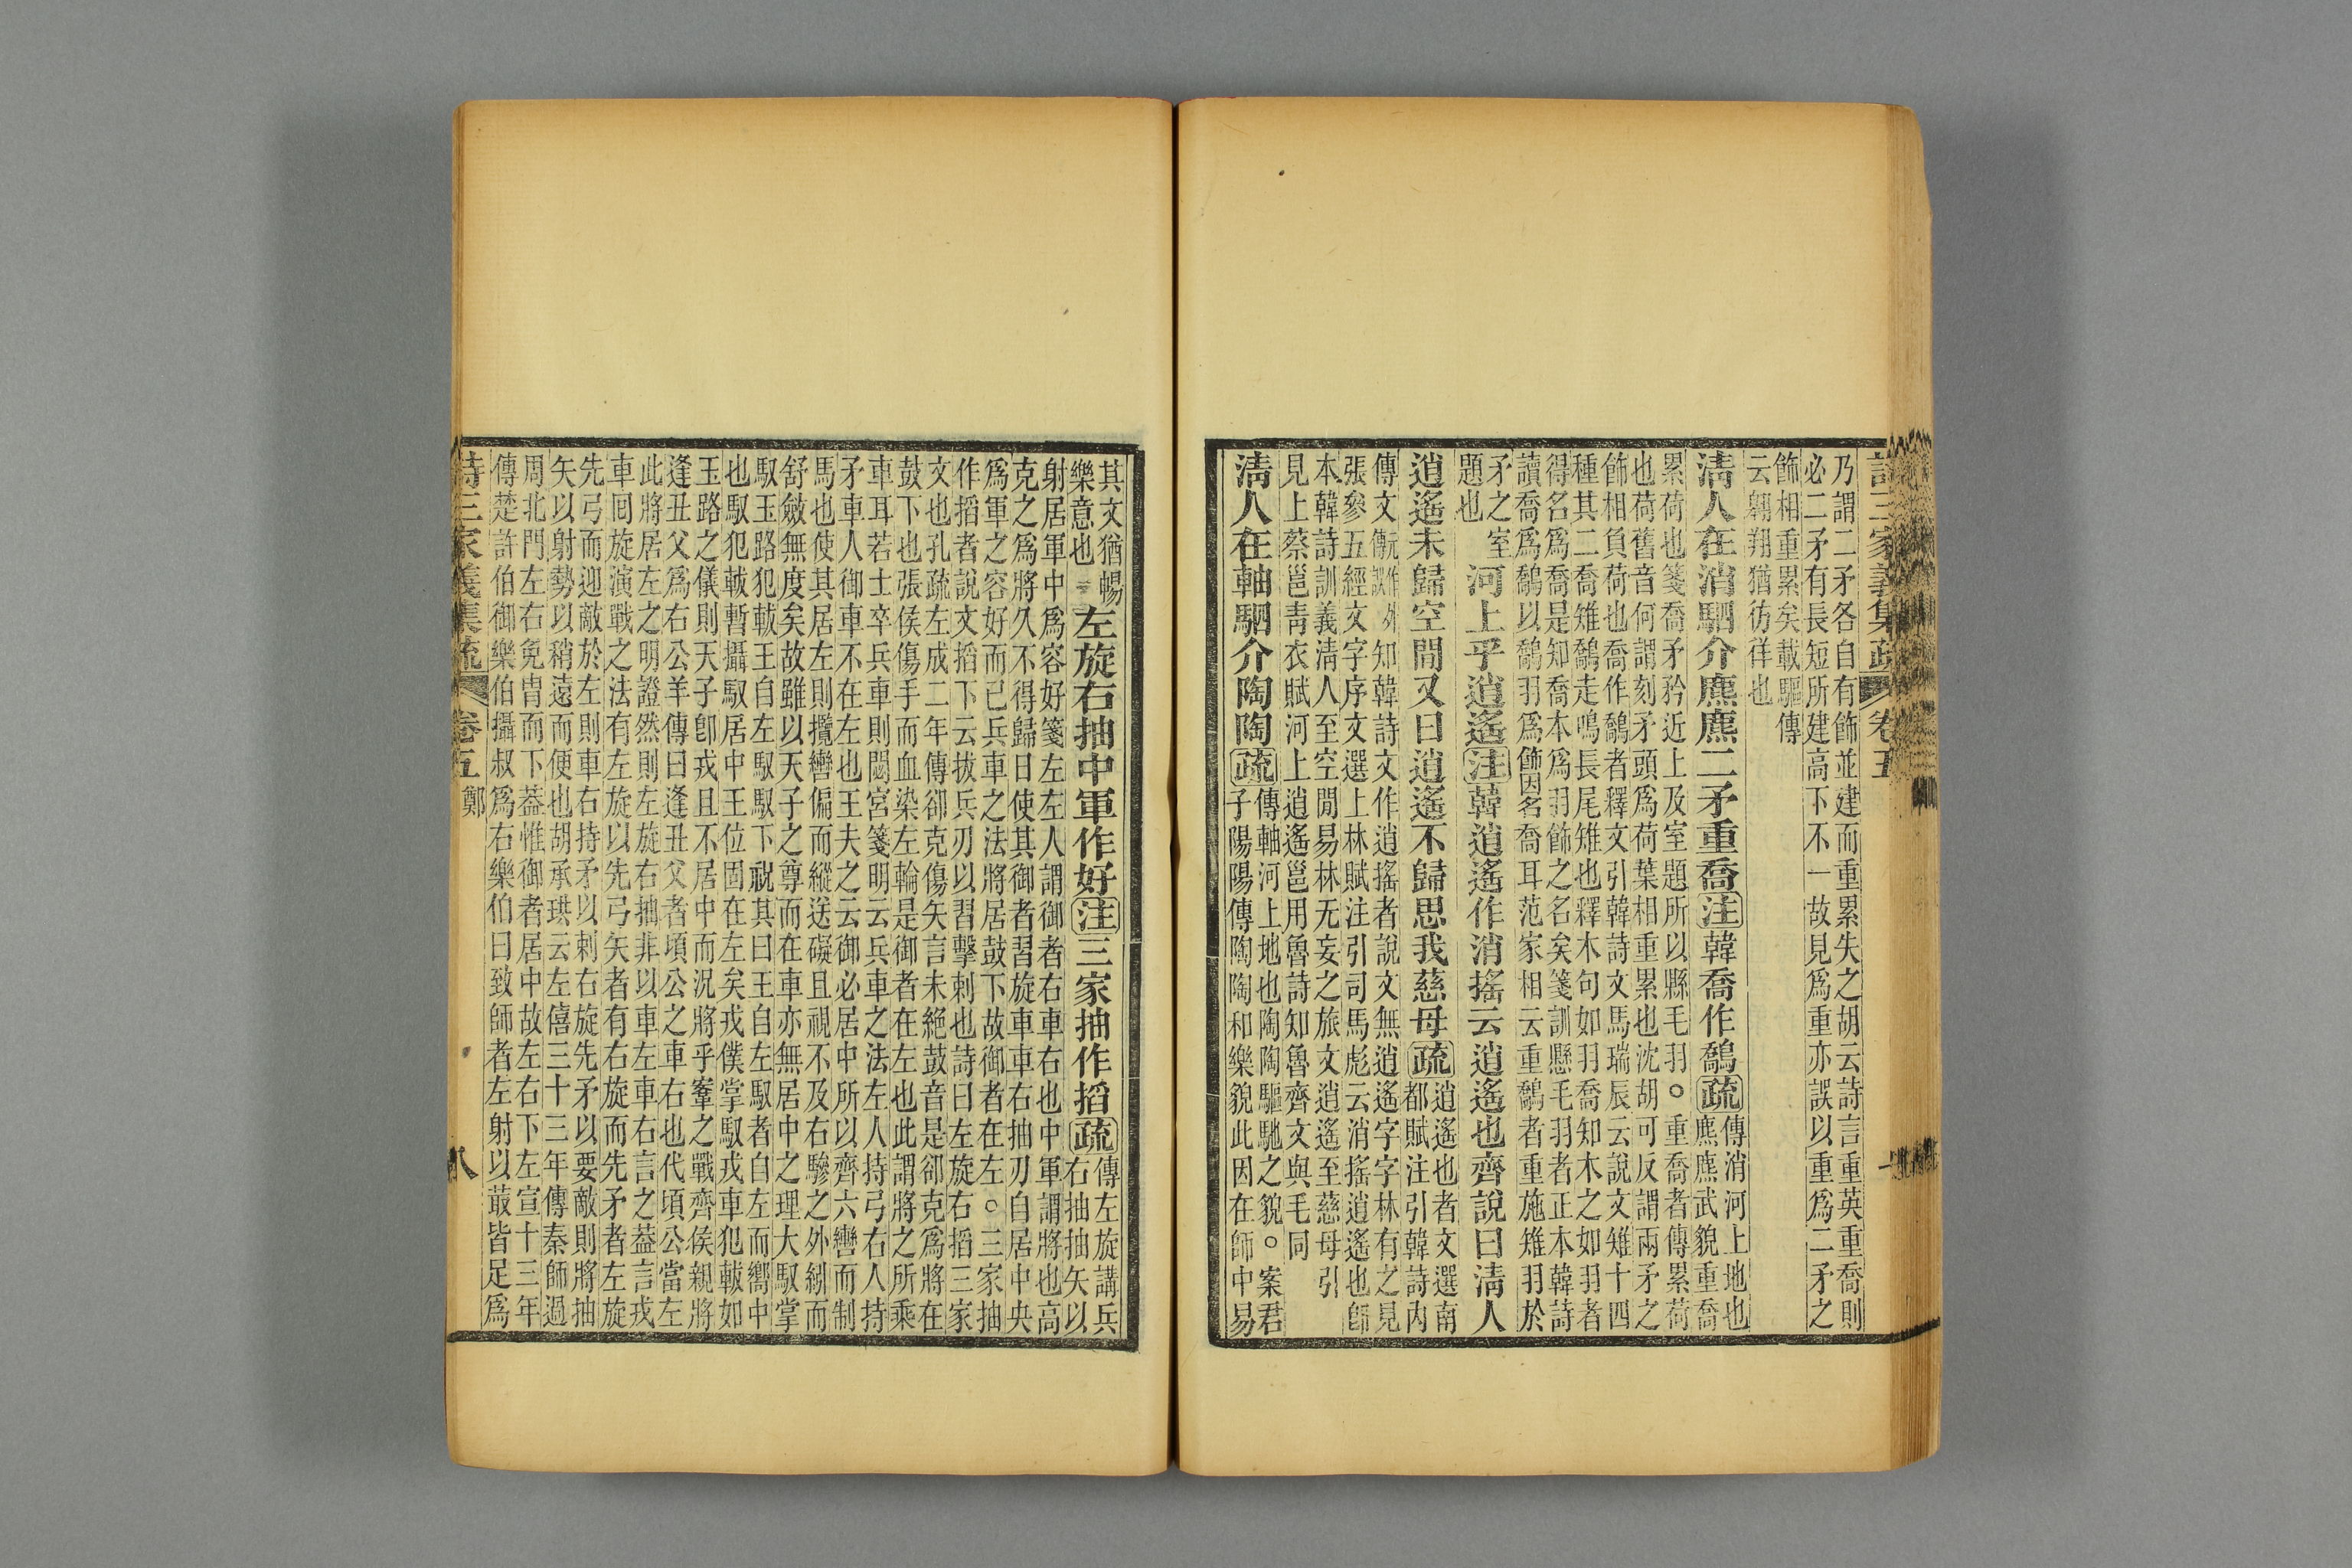 詩三家義集疏 卷五
乃謂二矛各自有飾並建而重累失之胡云詩言重英重喬則
必二矛有長短所建高下不一故見爲重亦誤以重爲二矛之
飾相重累矣載驅傳
云翱翔猶彷徉也
清人在消駟介麃麃二矛重喬注韓喬作鷮疏
傳消河上地也
麃麃武貌重喬
累荷也箋喬矛矜近上及室題所以縣毛羽○重喬者傳累荷
也荷舊音何謂刻矛頭爲荷葉相重累也沈胡可反謂兩矛之
飾相負荷也喬作鷮者釋文引韓詩文馬瑞辰云說文雉十四
種其二喬雉鷮走鳴長尾雉也釋木句如羽喬知木之如羽者
得名爲喬是知喬本爲羽飾之名矣箋訓懸毛羽者正本韓詩
讀喬爲鷮以鷮羽爲飾因名喬耳范家相云重鷮者重施雉羽於
矛之室
題也
河上乎逍遙注韓逍遙作消搖云逍遙也齊說曰清人
逍遙未歸空閒又曰逍遙不歸思我慈母疏
逍遙也者文選南
都賦注引韓詩內
傳文傳元誤作外知韓詩文作逍搖者說文無逍遙字字林有之見
張參五經文字序文選上林賦注引司馬彪云消搖逍遙也卽
本韓詩訓義清人至空閒易林无妄之旅文逍遙至慈母引
見上蔡邕青衣賦河上逍遙邕用魯詩知魯齊文與毛同
清人在軸駟介陶陶疏
傳軸河上地也陶陶驅馳之貌○案君
子陽陽傳陶陶和樂貌此因在師中易
其文猶暢
樂意也
左旋右抽中軍作好注三家抽作搯疏
傳左旋講兵
右抽抽矢以
射居軍中爲容好箋左左人謂御者右車右也中軍謂將也高
克之爲將久不得歸日使其御者習旋車車右抽刃自居中央
爲軍之容好而已兵車之法將居鼓下故御者在左○三家抽
作搯者說文搯下云拔兵刃以習擊刺也詩曰左旋右搯三家
文也孔疏左成二年傳卻克傷矢言未絕鼓音是卻克爲將在
鼓下也張侯傷手而血染左輪是御者在左也此謂將之所乘
車耳若士卒兵車則閟宮箋明云兵車之法左人持弓右人持
矛車人御車不在左也王夫之云御必居中所以齊六轡而制
馬也使其居左則攬轡偏而縱送礙且視不及右驂之外紖而
舒斂無度矣故雖以天子之尊而在車亦無居中之理大馭掌
馭玉路犯軷王自左馭馭下祝其曰王自左馭者自左而嚮中
也馭犯軷暫攝馭居中王位固在左矣戎僕掌馭戎車犯軷如
玉路之儀則天子卽戎且不居中而況將乎鞌之戰齊侯親將
逢丑父爲右公羊傳曰逢丑父者頃公之車右也代頃公當左
此將居左之明證然則左旋右抽非以車左車右言之葢言戎
車回旋演戰之法有左旋以先弓矢者有右旋而先矛者左旋
先弓而迎敵於左則車右持矛以刺右旋先矛以要敵則將抽
矢以射勢以稍遠而便也胡承珙云左僖三十三年傳秦師過
周北門左右免胄而下葢惟御者居中故左右下左宣十三年
傳楚許伯御樂伯攝叔爲右樂伯曰致師者左射以菆皆足爲
詩三家義集疏 卷五 鄭
八